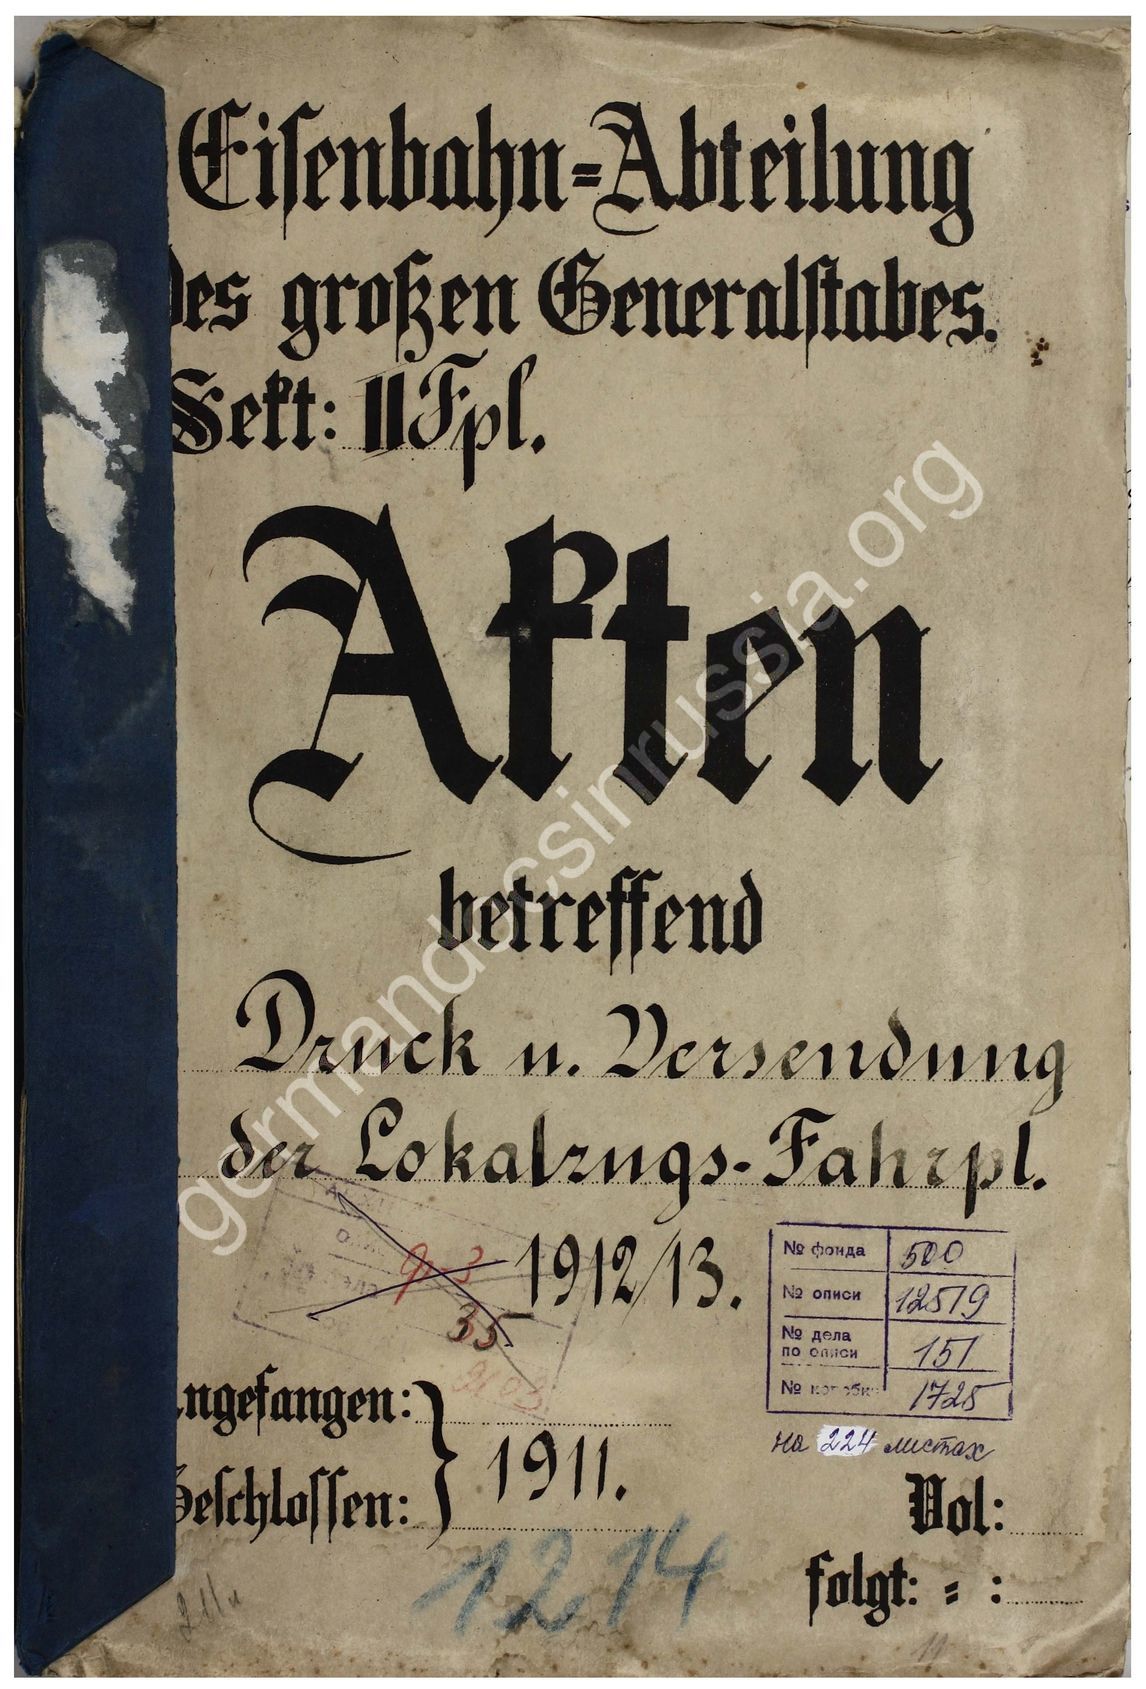 Eisenbahn=Abteilung
des großen Generalstabes.
Sekt: II Fpl.
Akten
betreffend
Druck u. Versendung
der Lokalzugs-Fahrpl.
1912/13.
№ фонда 500
№ описи 12519
№ дела по описи 151
№ коробки 1725
на 224 листах
9-3
35
Angefangen:
Geschlossen:
1911.
Vol:
folgt: = :
1214
germandocsinrussia.org